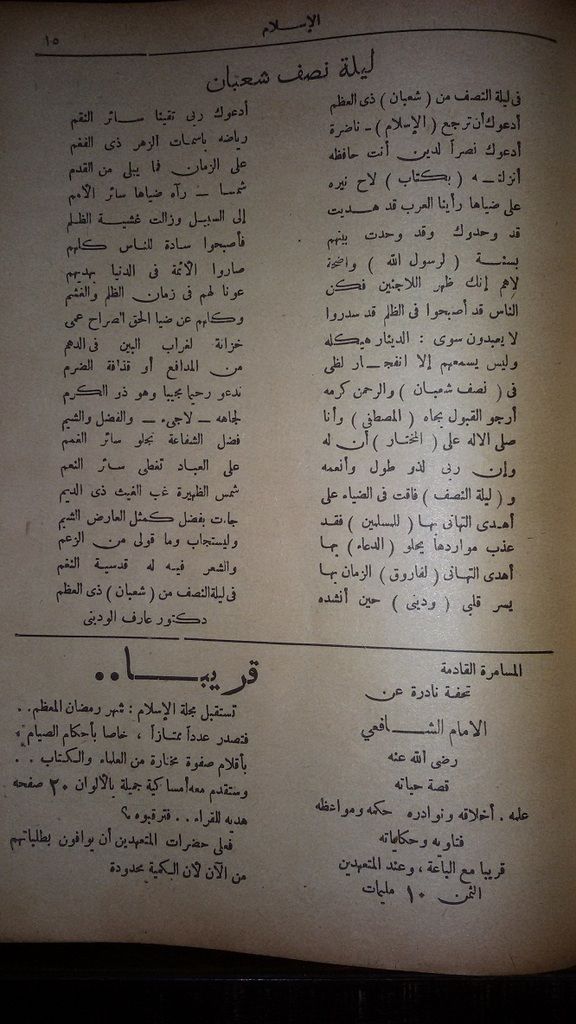 الإسلام
١٥
ليلة نصف شعبان
فى ليلة النصف من ( شعبان ) ذى العظم
أدعوك ربى تقينا سائر النقم
أدعوك أن ترجع ( الإسلام ) ـ ناضرة
رياضه باسمات الزهر ذى الفغم
أدعوك نصراً لدين أنت حافظه
على الزمان فما يبلى من القدم
أنزلته ( بكتاب ) لاح نيره
شمسا ـ رآه ضياها سائر الأمم
على ضياها رأينا العرب قد هديت
إلى السبيل وزالت غشية الظلم
قد وحدوك وقد وحدت بينهم
فأصبحوا سادة للناس كلهم
بسنة ( لرسول الله ) واضحة
صاروا الأئمة فى الدنيا بهديهم
لاهم إنك ظهر اللاجئين فكن
عونا لهم فى زمان الظلم والغشم
الناس قد أصبحوا فى الظلم قد سدروا
وكلهم عن ضيا الحق الصراح عمى
لا يعبدون سوى : الدينار هيكله
خزانة لغراب البين فى الدهم
وليس يسمعهم إلا انفجار لظى
من المدافع أو قذافة الضرم
فى ( نصف شعبان ) والرحمن كرمه
ندعو رحيما مجيبا وهو ذو الكرم
أرجو القبول بجاه ( المصطفى ) وأنا
لجاهه ـ لاجىء ـ والفضل والشيم
صلى الاله على ( المختار ) أن له
فضل الشفاعة تجلو سائر الغمم
وإن ربى لذو طول وأنعمه
على العباد تغطى سائر النعم
و ( ليلة النصف ) فاقت فى الضياء على
شمس الظهيرة غب الغيث ذى الديم
أهدى التهانى بها ( للمسلمين ) فقد
جاءت بفضل كمثل العارض الشيم
عذب مواردها يحلو ( الدعاء ) بها
وليستجاب وما قولى من الزعم
أهدى التهانى ( لفاروق ) الزمان بها
والشعر فيه له قدسية النغم
يسر قلبى ( ودينى ) حين أنشده
فى ليلة النصف من ( شعبان ) ذى العظم
دكتور عارف الودينى
المسامرة القادمة
تحفة نادرة عن
الامام الشافعي
رضى الله عنه
قصة حياته
علمه . أخلاقه ونوادره حكمه ومواعظه
فتاويه وحكاياته
قريبا مع الباعة ، وعند المتعهدين
الثمن ١٠ مليمات
قريبا..
تستقبل مجلة الإسلام : شهر رمضان المعظم . .
فتصدر عدداً ممتازاً ، خاصا بأحكام الصيام ،
بأقلام صفوة مختارة من العلماء والكتاب . .
وستقدم معه أمساكية جميلة بالألوان ٢٠ صفحه
هديه للقراء . . فترقبوه ؟
فعلى حضرات المتعهدين أن يوافون بطلبياتهم
من الآن لأن الكمية محدودة